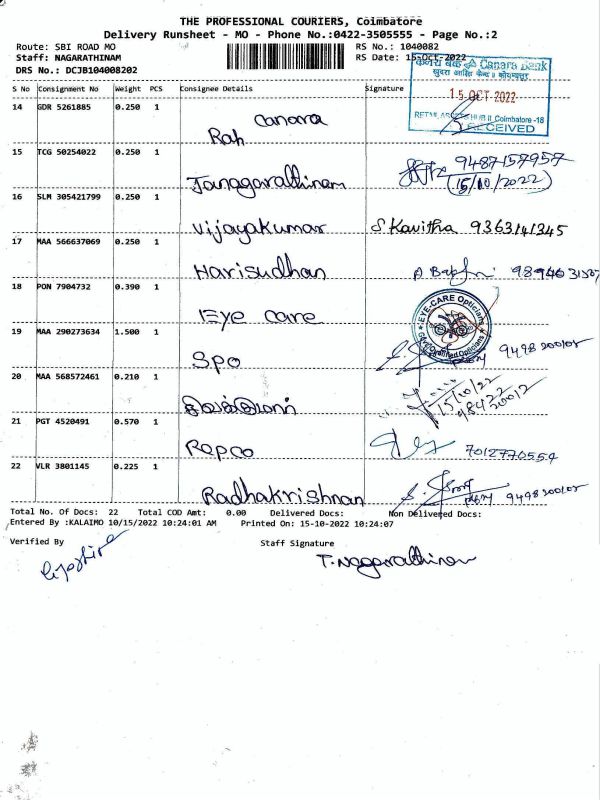 THE PROFESSIONAL COURIERS, Coimbatore
Delivery Runsheet - MO - Phone No.:0422-3505555 - Page No.:2
Route: SBI ROAD MO
RS No.: 1040082
Staff: NAGARATHINAM
RS Date: 15-Oct-2022
DRS No.: DCJB104008202
केनरा बैंक Canara Bank
15 OCT 2022
Coimbatore -18
RECEIVED
S No Consignment No Weight PCS Consignee Details Signature
14 GDR 5261885 0.250 1 Canara
Rah
15 TCG 50254022 0.250 1 9487157957
Janagarathinam (15/10/2022)
16 SLM 305421799 0.250 1
Vijayakumar S. Kavitha 9363141345
17 MAA 566637069 0.250 1
Harisudhan
18 PON 7904732 0.390 1
Eye care
EYE-CARE Opticians
19 MAA 290273634 1.500 1
Spo
20 MAA 568572461 0.210 1 15/10/22
சிவக்குமார்
21 PGT 4520491 0.570 1
Repco 7012770554
22 VLR 3801145 0.225 1
Radhakrishnan
Total No. Of Docs: 22 Total COD Amt: 0.00 Delivered Docs: Non Delivered Docs:
Entered By :KALAIMO 10/15/2022 10:24:01 AM Printed On: 15-10-2022 10:24:07
Verified By Staff Signature
T. Nagarathinam